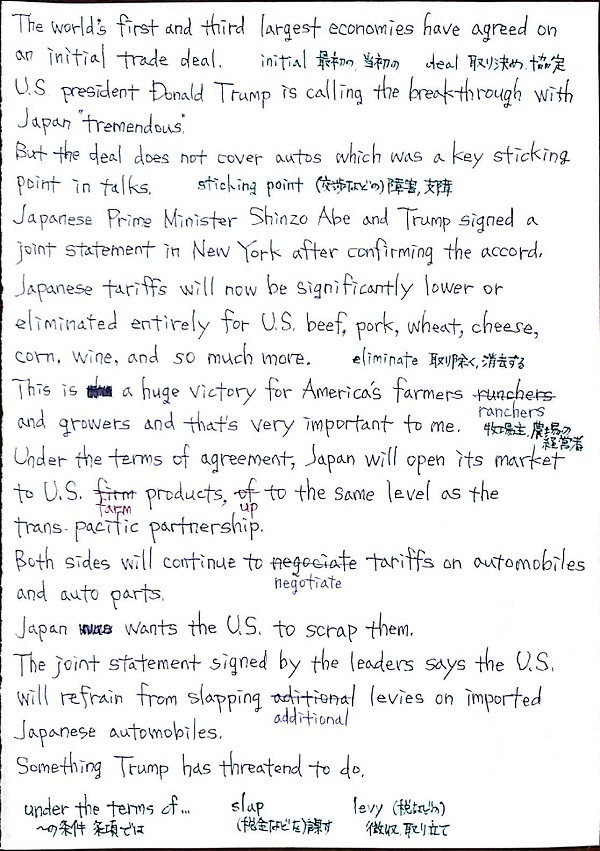 The world's first and third largest economies have agreed on
an initial trade deal. initial 最初の, 当初の deal 取り決め, 協定
U.S president Donald Trump is calling the breakthrough with
Japan "tremendous".
But the deal does not cover autos which was a key sticking
point in talks. sticking point (交渉などの) 障害, 支障
Japanese Prime Minister Shinzo Abe and Trump signed a
joint statement in New York after confirming the accord.
Japanese tariffs will now be significantly lower or
eliminated entirely for U.S. beef, pork, wheat, cheese,
corn, wine, and so much more. eliminate 取り除く, 消去する
This is a huge victory for America's farmers runchers
ranchers
and growers and that's very important to me. 牧場主, 農場の
経営者
Under the terms of agreement, Japan will open its market
to U.S. firm products, of to the same level as the
farm up
trans-pacific partnership.
Both sides will continue to negociate tariffs on automobiles
negotiate
and auto parts.
Japan wants the U.S. to scrap them.
The joint statement signed by the leaders says the U.S.
will refrain from slapping aditional levies on imported
additional
Japanese automobiles.
Something Trump has threatend to do.
under the terms of... slap levy (税などの)
〜の条件 条項では (税金などを)課す 徴収, 取り立て